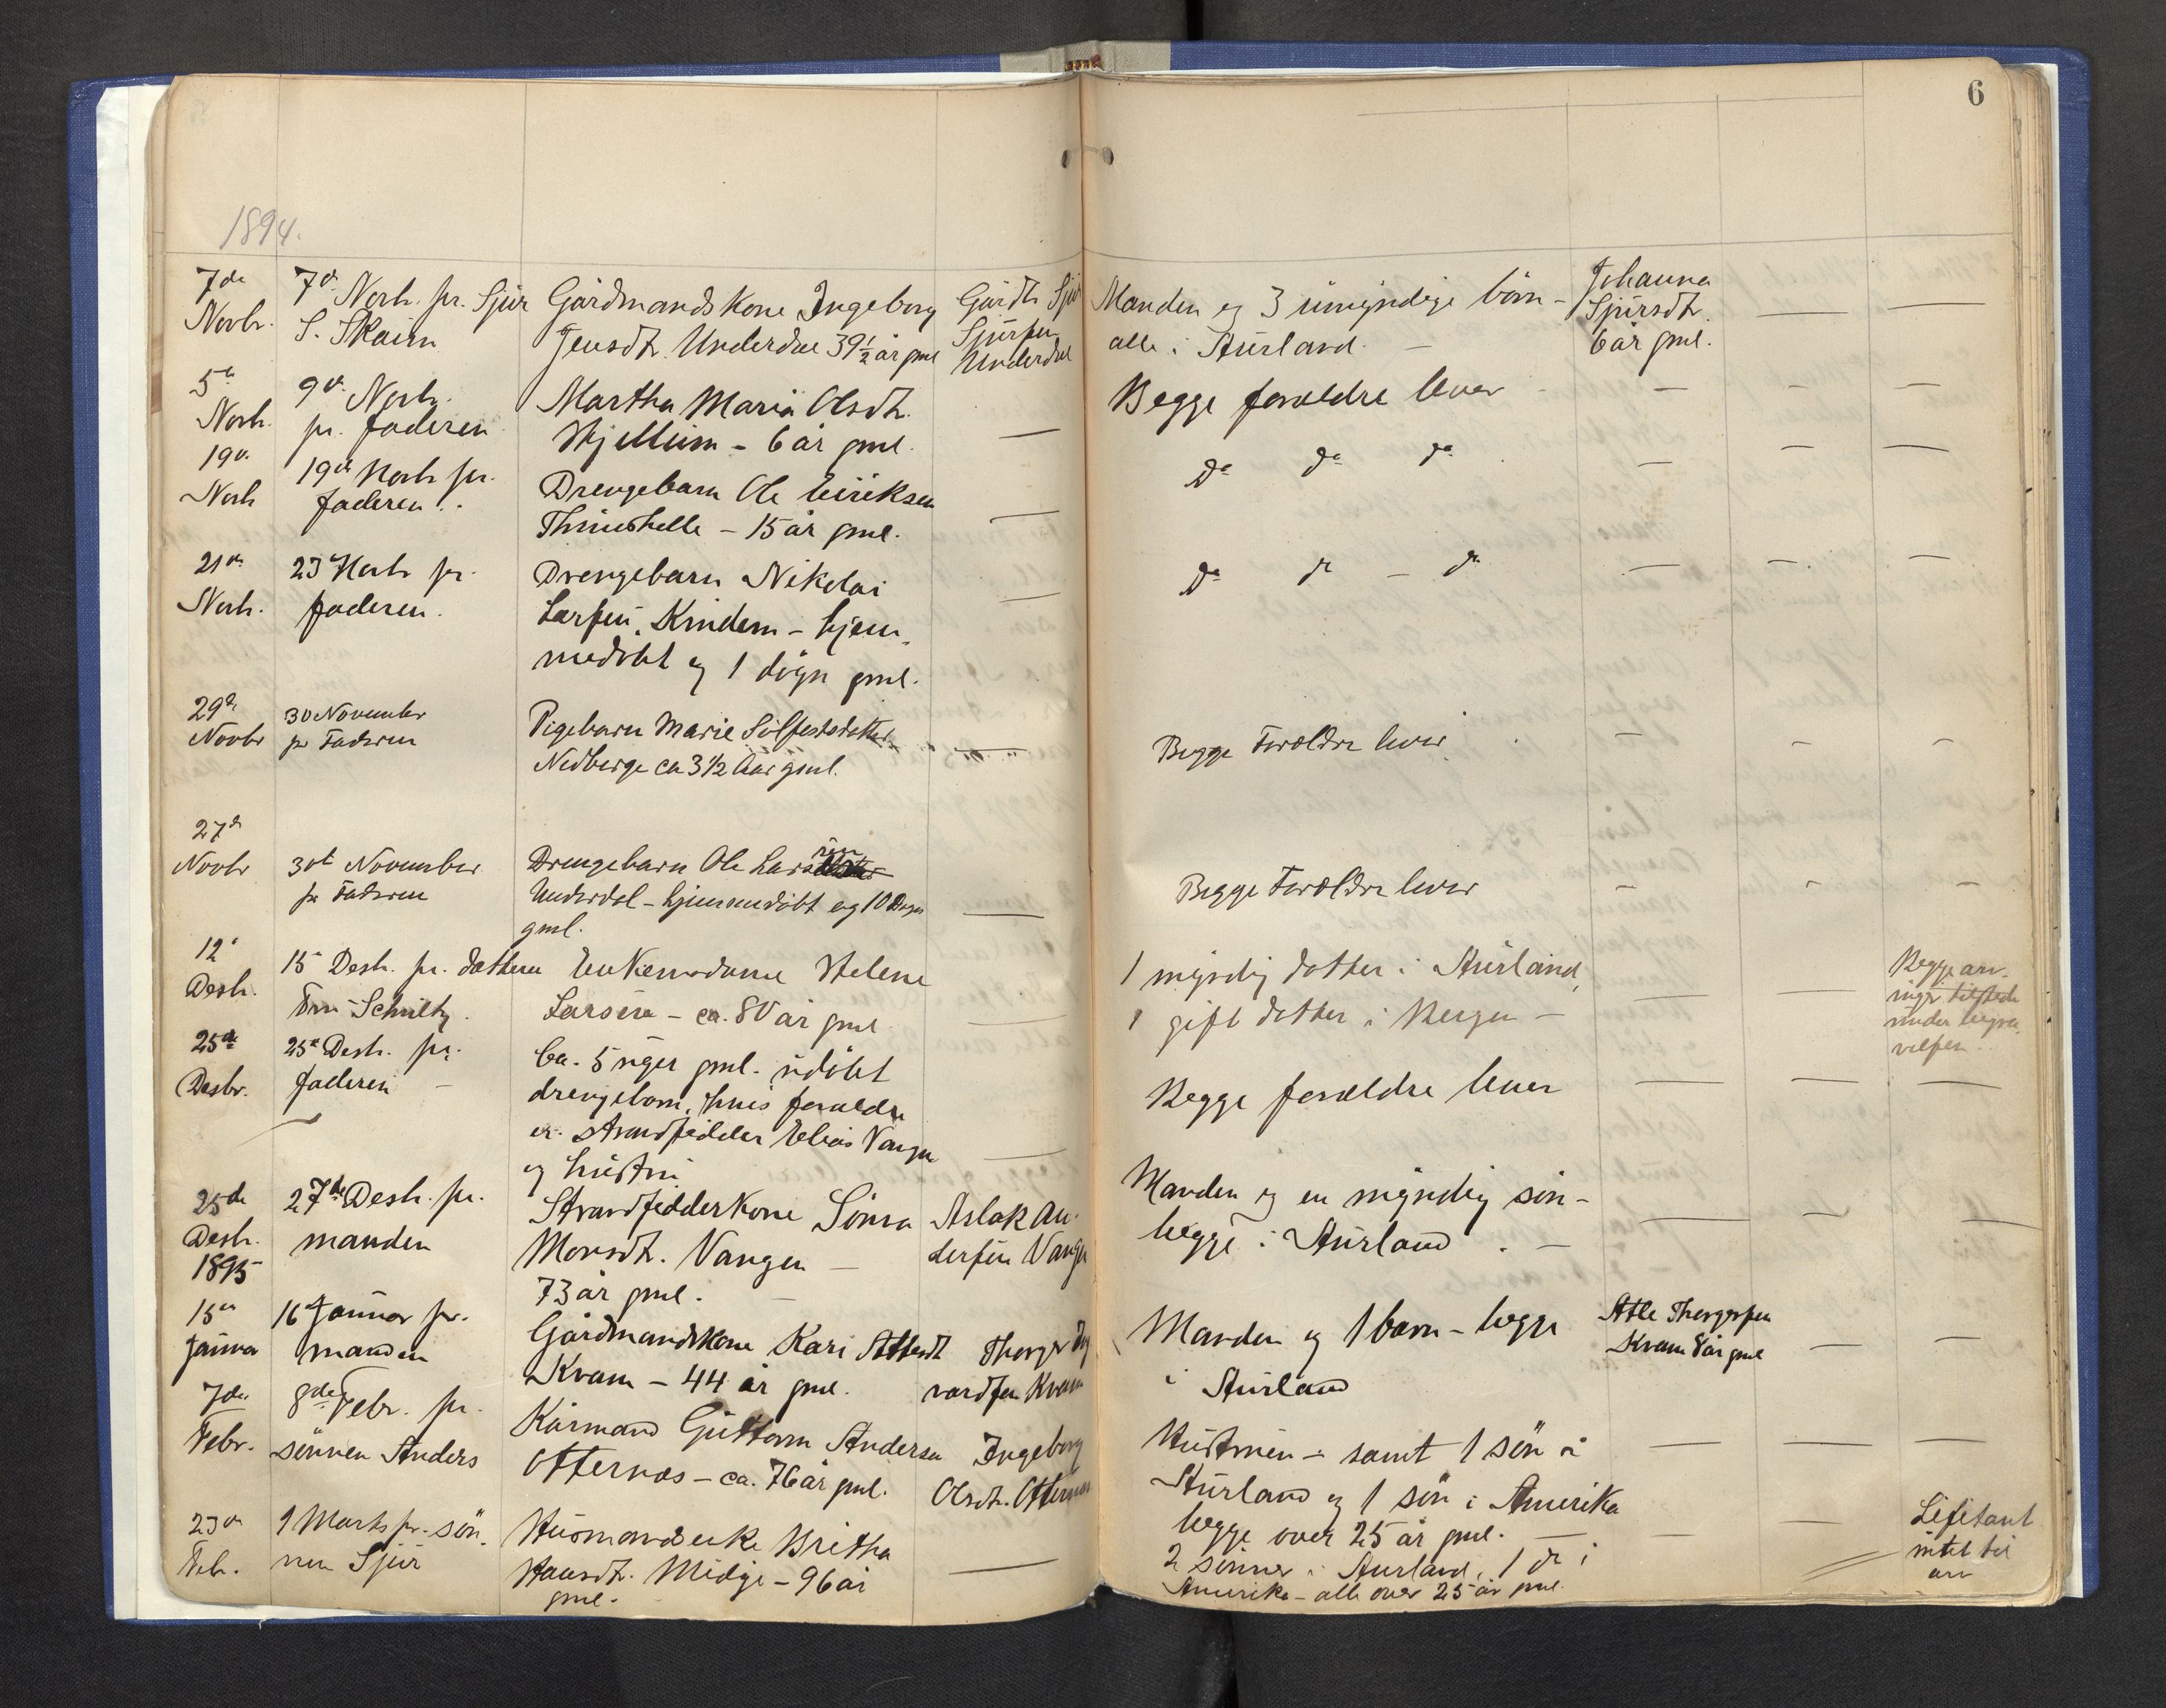 6
1894.
7de
Novbr.
7de Novb. pr. Sjur
S. Skaim
Gårdmandskone Ingeborg
Jensdt. Underdal 39½ år gml
Gårdb. Sjur
Sjursen
Underdal
Manden og 3 umyndige börn -
alle i Aurland. —
Johanna
Sjursdt.
6 år gml.
5te
Novb.
9de Novb.
pr. faderen
Martha Maria Olsdt.
Skjellum - 6 år gml.
Begge forældre lever
19de
Novb
19de Novb pr.
faderen.
Drengebarn Ole Eiriksen
- 15 år gml.
do do do
21de
Novb.
23de Novb pr.
faderen.
Drengebarn Nikolai
Larsen, Kvindem - hjem-
medöbt og 1 dögn gml.
do do - do
29de
Novbr
30 November
pr Faderen
Pigebarn Marie Sölfestsdatter
Nedberge ca 3 1/2 Aar gml.
Begge Forældre lever
27de
Novbr
30t November
pr Faderen
Drengebarn Ole Larssen
Underdal - hjemmedöbt og 10 Dage
gml.
Begge Forældre lever
12te
Desb.
15de Desb. pr. datteren
Fru Schultz.
Enkemadame Helene
Larsen - ca. 80 år gml
1 myndig datter i Aurland,
1 gift datter i Bergen -
Begge arv-
inger tilstede
under begra-
velsen.
25de
Desbr.
25de Desb. pr.
faderen -
Ca. 5 uger gml. udöbt
drengebarn, hvis forældre
er. strandsidder Elias Vangen
og hustru
Begge forældre lever
25de
Desb.
27de Desb. pr.
manden
Strandsidderkone Sönva
Monsdt. Vangen -
73 år gml. -
Aslak An-
dersen Vangen
Manden og en myndig sön -
begge i Aurland. -
1895
15de
Januar
16de Januar pr.
manden
Gårdmandskone Kari Atlesdt
Kvam - 44 år gml.
Thorger Ing
vardsen Kvam
Manden og 1 barn - begge
i Aurland
Atle Thorgersen
Kvam 8 år gml
7de
Febr.
8de Febr. pr.
sönnen Anders
Kårmand Guttorm Andersen
Otternæs - ca. 76 år gml.
Ingeborg
Olsdt. Otternæs
Hustruen - samt 1 sön i
Aurland og 1 sön i Amerika
begge over 25 år gml. -
23de
Feb.
1 Marts pr. sön-
nen Sjur
Husmandsenke Britha
Hansdt. Midje - 96 år
gml.
2 sönner i Aurland, 1 do i
Amerika - alle over 25 år gml.
intet til
arv